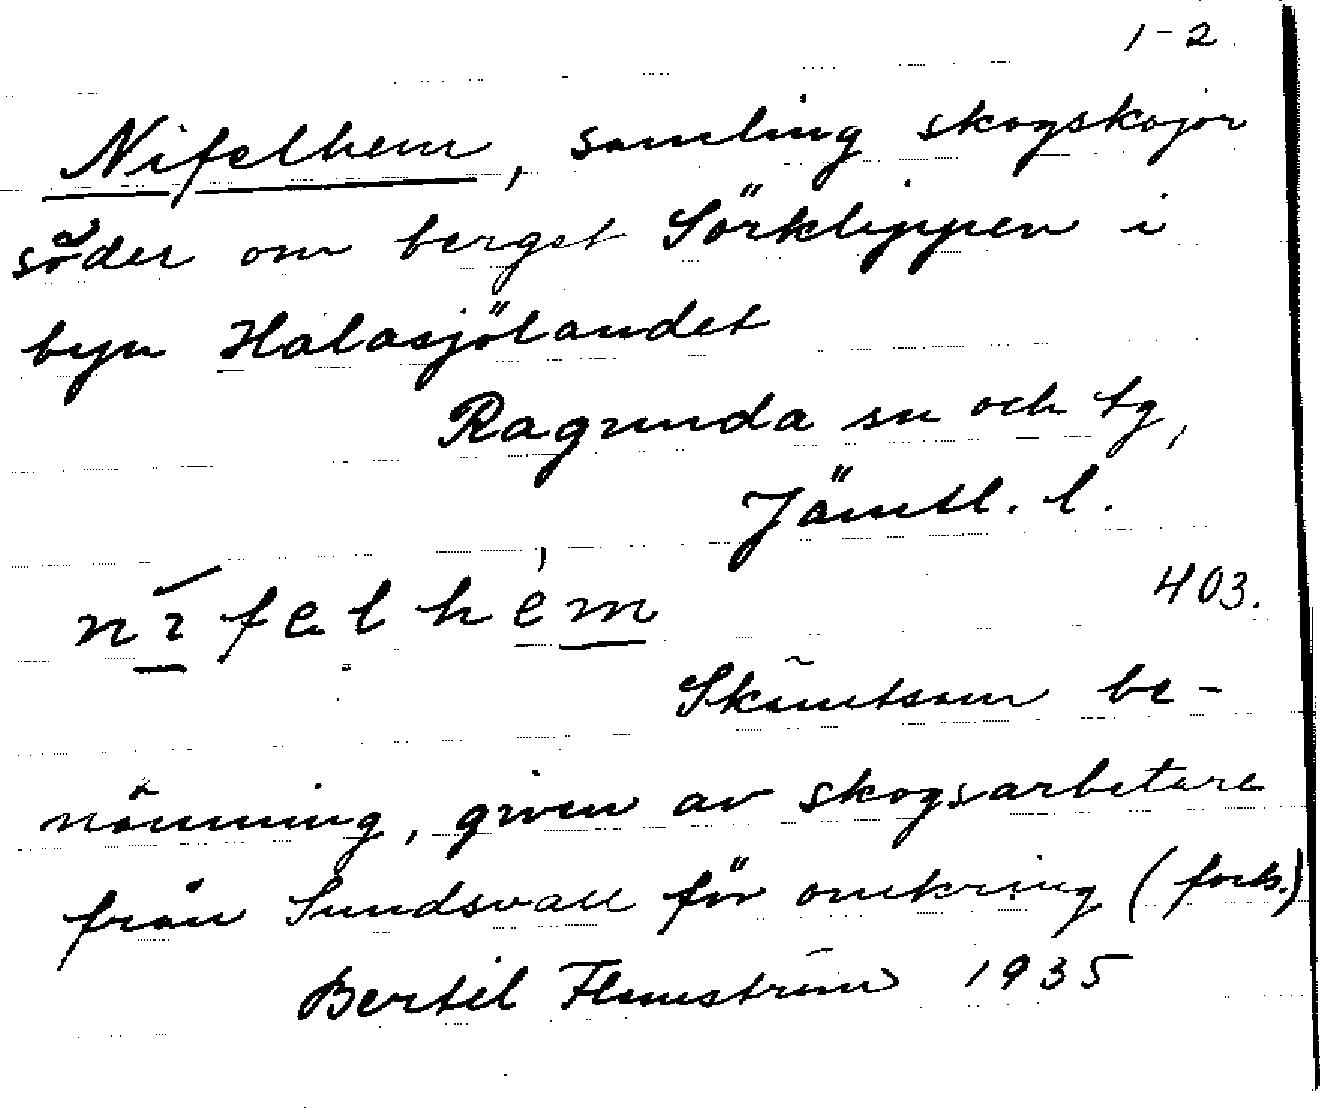 1-2.
Nifelhem, samling skogskojor
söder om berget Sörklippen i
byn Halasjölandet
Ragunda sn och tg,
Jämtl. l.
403.
nifelhem
Skämtsam be-
nämning, given av skogsarbetare
från Sundsvall för omkring (forts.)
Bertil Flemström 1935